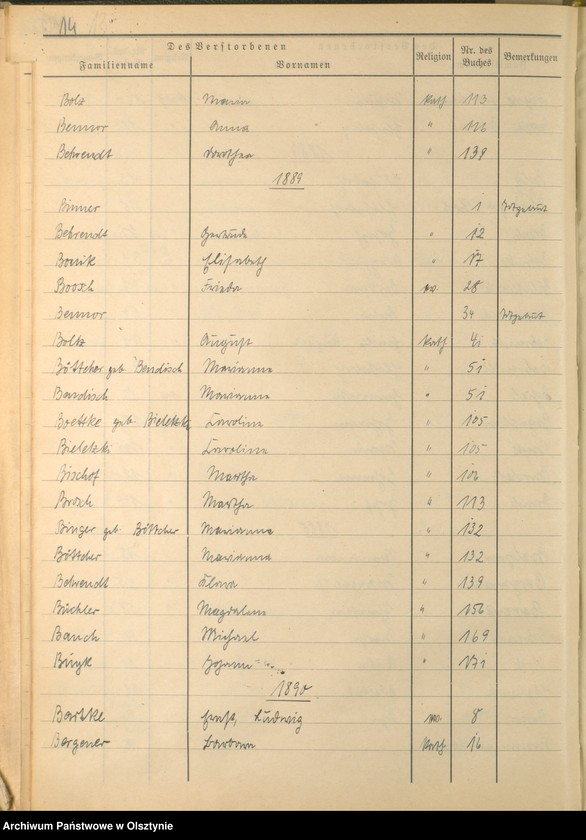 14
Des Verstorbenen
Familienname Vornamen Religion Nr. des Buches Bemerkungen
Bolz Maria Kath 113
Bemmor Anna " 126
Behrendt Dorothea " 139
1889
Binner 1 Totgeburt
Behrendt Gertrude " 12
Bonik Elisabeth " 17
Boosch Frieda ev. 28
Bennor 34 Totgeburt
Boltz August Kath 41
Böttcher geb. Bendisch Marianna " 51
Bandisch Marianna " 51
Boettke geb. Bieletzki Karolina " 105
Bieletzki Karolina " 105
Bischof Martha " 106
Brosch Martha " 113
Binger geb. Böttcher Marianna " 132
Böttcher Marianna " 132
Behrendt Klara " 139
Büchler Magdalena " 156
Banch Michael " 169
Buyk Johann " 171
1890
Bartke Ernst, Ludwig ev. 8
Bergener Barbara Kath 16
Archiwum Państwowe w Olsztynie